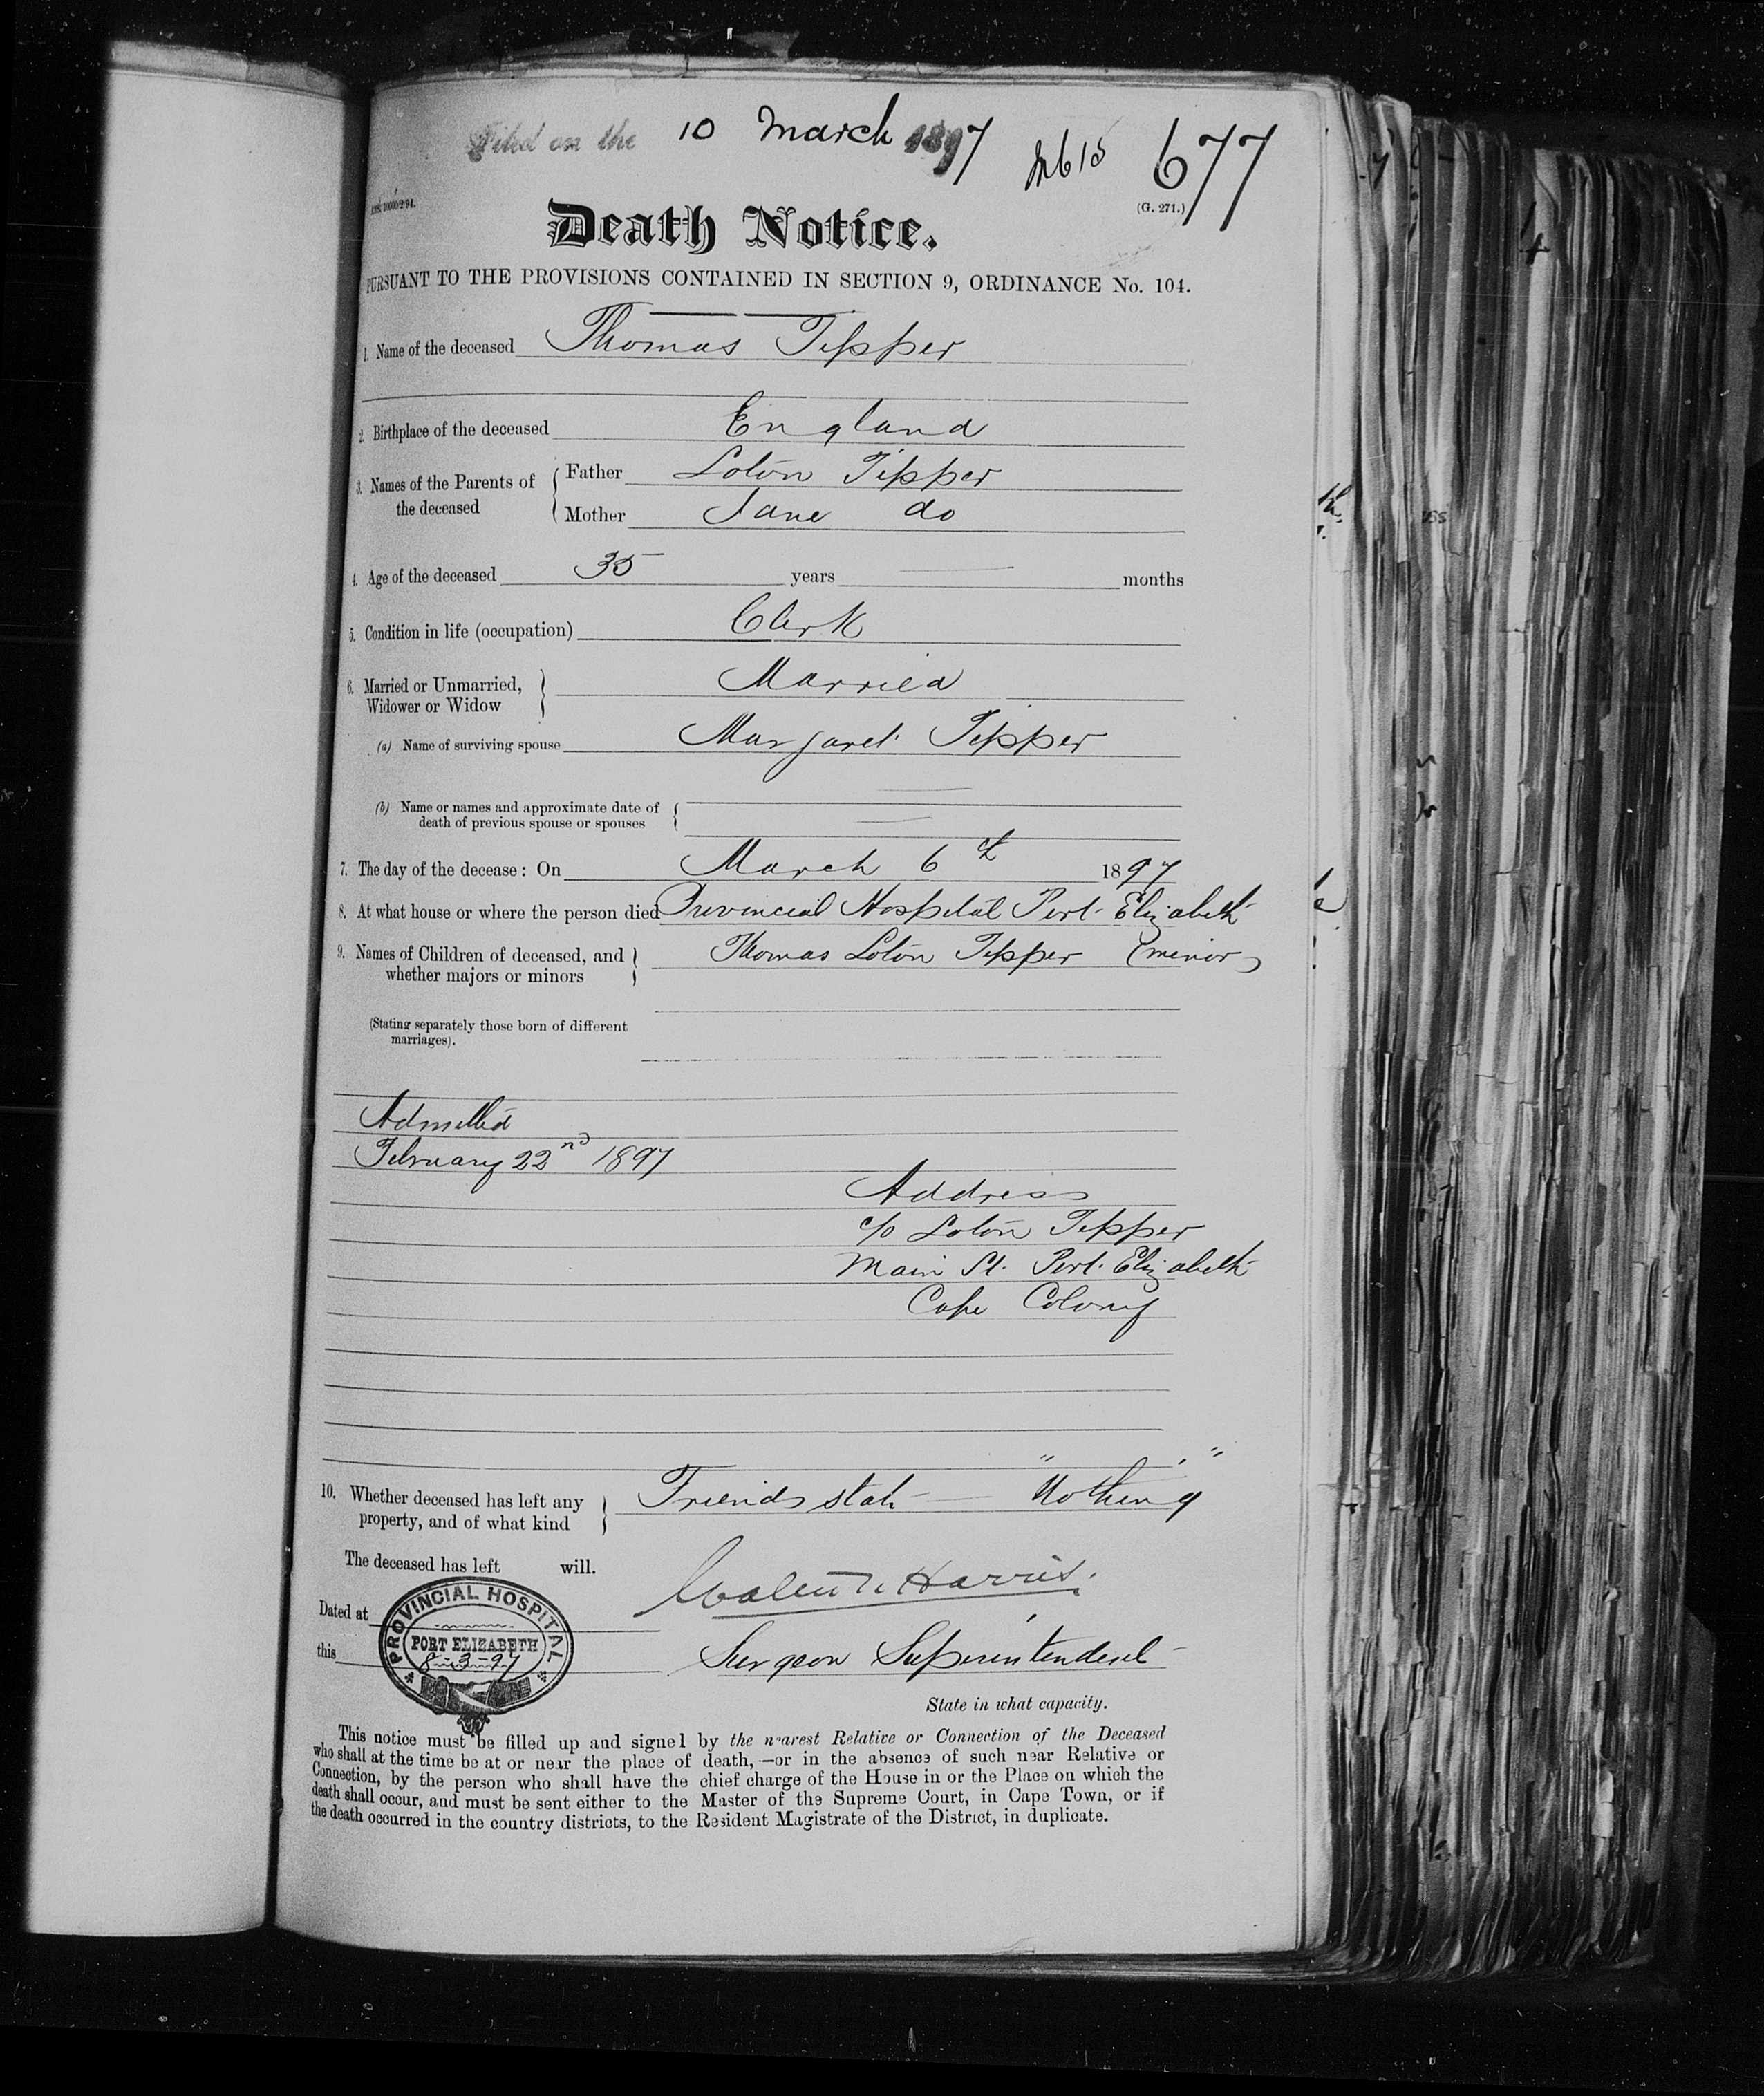 Filed on the 10 March 1897
677
(G. 271.)
Death Notice.
PURSUANT TO THE PROVISIONS CONTAINED IN SECTION 9, ORDINANCE No. 104.
1. Name of the deceased Thomas Tipper
2. Birthplace of the deceased England
3. Names of the Parents of the deceased { Father Loton Tipper
Mother Jane do
4. Age of the deceased 35 years — months
5. Condition in life (occupation) Clerk
6. Married or Unmarried, Widower or Widow } Married
(a) Name of surviving spouse Margaret Tipper
(b) Name or names and approximate date of death of previous spouse or spouses { —
—
7. The day of the decease: On March 6th 1897
8. At what house or where the person died Provincial Hospital Port Elizabeth
9. Names of Children of deceased, and whether majors or minors } Thomas Loton Tipper (minor)
(Stating separately those born of different marriages).
Admitted
February 22nd 1897
Address
c/o Loton Tipper
Main St. Port Elizabeth
Cape Colony
10. Whether deceased has left any property, and of what kind } Friends state — "Nothing"
The deceased has left will.
Harris.
Dated at
this
PROVINCIAL HOSPITAL
PORT ELIZABETH
8-3-97
Surgeon Superintendent
State in what capacity.
This notice must be filled up and signed by the nearest Relative or Connection of the Deceased
who shall at the time be at or near the place of death,—or in the absence of such near Relative or
Connection, by the person who shall have the chief charge of the House in or the Place on which the
death shall occur, and must be sent either to the Master of the Supreme Court, in Cape Town, or if
the death occurred in the country districts, to the Resident Magistrate of the District, in duplicate.